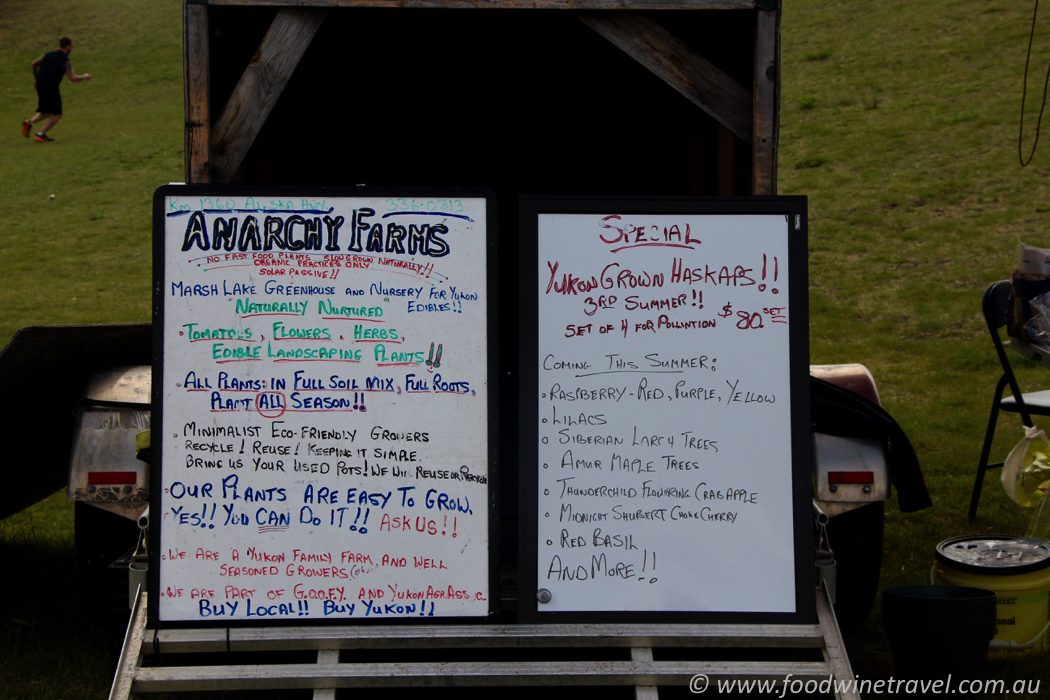 Km 1360 ALASKA HWY 336-0313
ANARCHY FARMS
NO FAST FOOD PLANTS SLOW GROWN NATURALLY!!
ORGANIC PRACTICES ONLY
SOLAR PASSIVE!!
MARSH LAKE GREENHOUSE AND NURSERY FOR YUKON
EDIBLES!!
"NATURALLY NURTURED"
• TOMATOES, FLOWERS, HERBS,
EDIBLE LANDSCAPING PLANTS!!
• ALL PLANTS: IN FULL SOIL MIX, FULL ROOTS,
PLANT ALL SEASON!!
• MINIMALIST ECO-FRIENDLY GROWERS
RECYCLE! REUSE! KEEPING IT SIMPLE.
BRING US YOUR USED POTS! WE WILL REUSE OR RECYCLE
• OUR PLANTS ARE EASY TO GROW,
YES!! YOU CAN DO IT!! ASK US!!
• WE ARE A YUKON FAMILY FARM, AND WELL
SEASONED GROWERS
• WE ARE PART OF G.O.O.F.Y. AND YUKON AGR. ASS.
BUY LOCAL!! BUY YUKON!!
SPECIAL
YUKON GROWN HASKAPS!!
3RD SUMMER!!
SET OF 4 FOR POLLINTION $80. SET
COMING THIS SUMMER:
• RASPBERRY - RED, PURPLE, YELLOW
• LILACS
• SIBERIAN LARCH TREES
• AMUR MAPLE TREES
• THUNDERCHILD FLOWERING CRABAPPLE
• MIDNIGHT SHUBERT CHOKECHERRY
• RED BASIL
AND MORE!!
© www.foodwinetravel.com.au